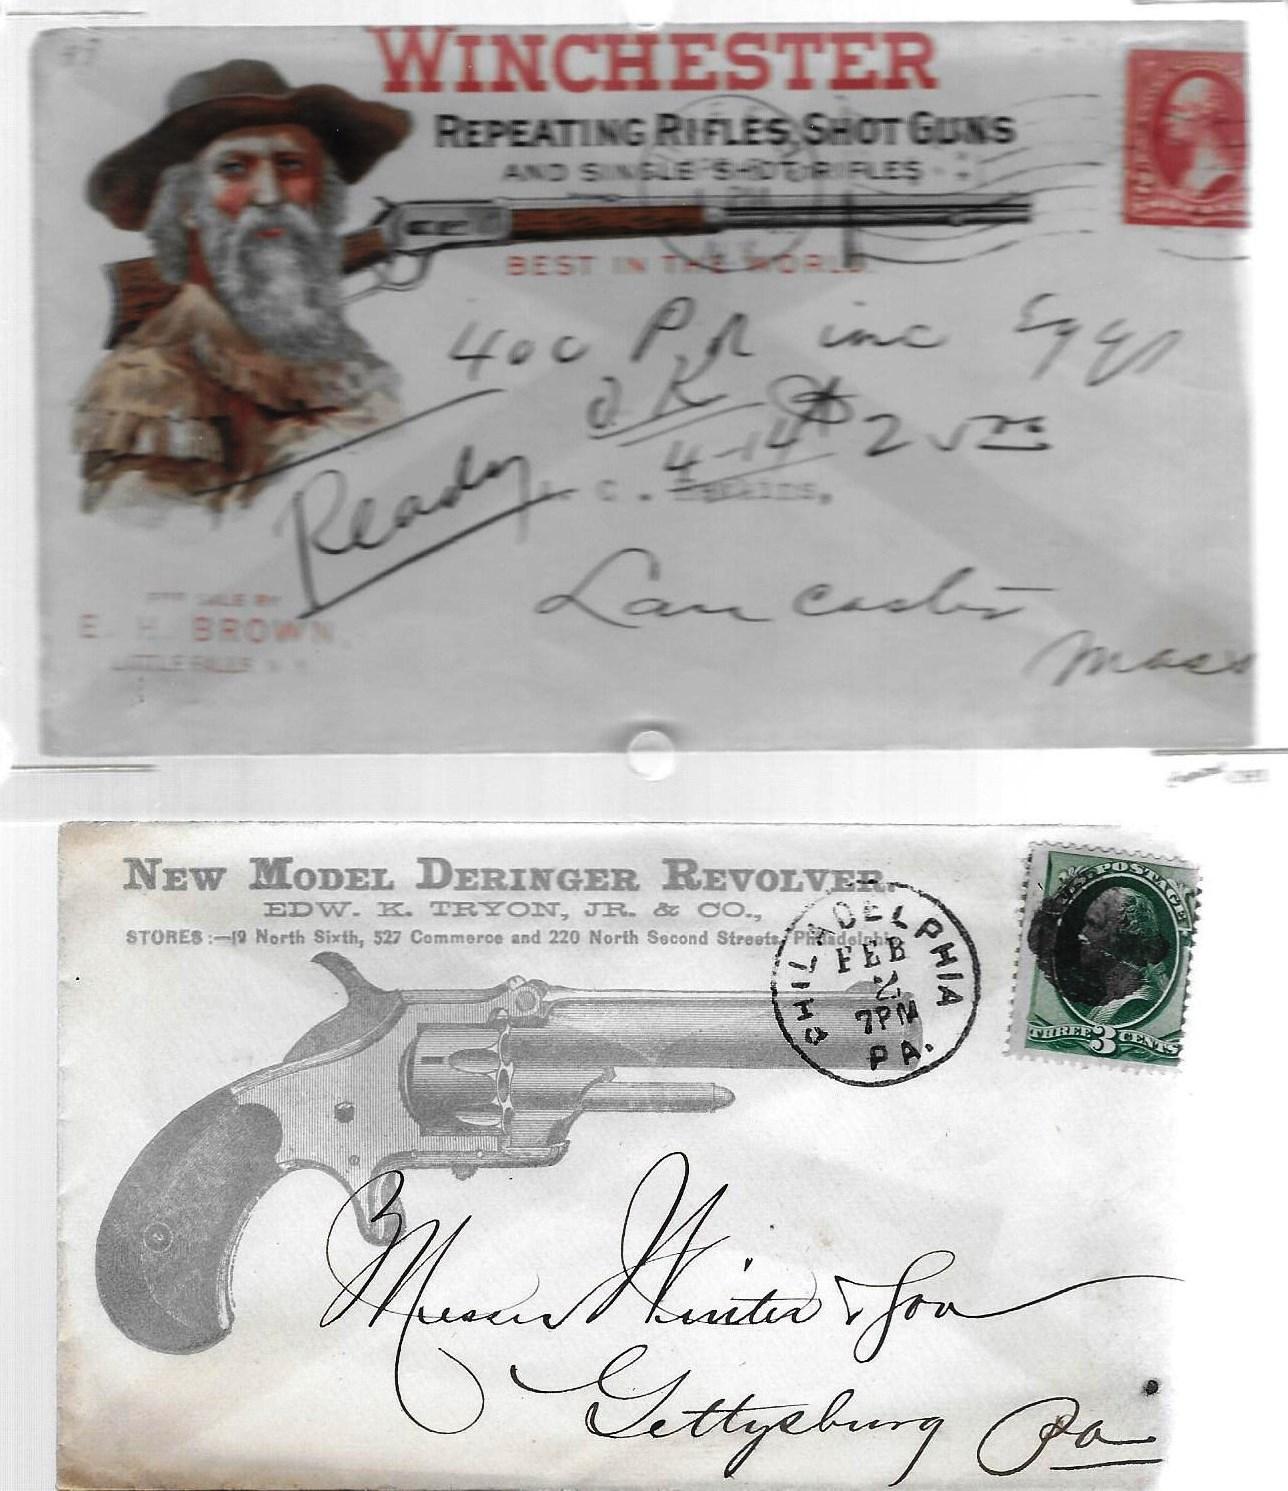 WINCHESTER
REPEATING RIFLES, SHOT GUNS
AND SINGLE SHOT RIFLES
BEST IN THE WORLD.
40c P.R inc Eggs
O.K.
4-14 $25 00
Ready
C.
Lancaster
Mass
FOR SALE BY
E. H. BROWN,
LITTLE FALLS N.Y.
NEW MODEL DERINGER REVOLVER.
EDW. K. TRYON, JR. & CO.,
STORES:—19 North Sixth, 527 Commerce and 220 North Second Streets, Philadelphia
PHILADELPHIA
FEB
2
7PM
PA.
U.S. POSTAGE
THREE 3 CENTS
Messrs Winter & Son
Gettysburg Pa